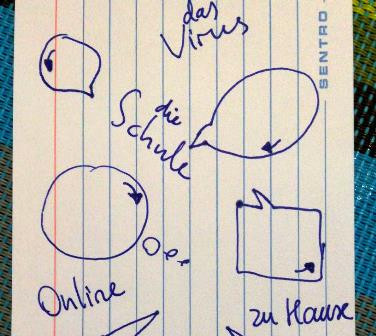 das
Virus
SENTRO
die
Schule
Online
zu Hause